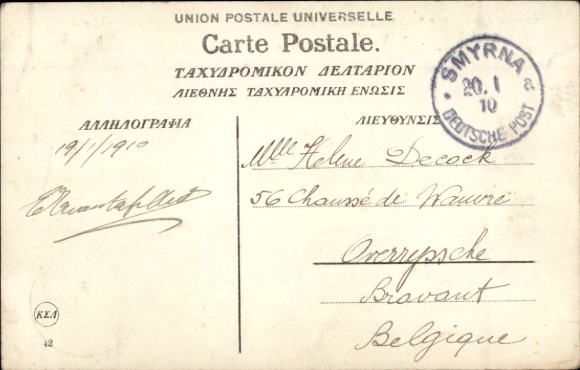 UNION POSTALE UNIVERSELLE
Carte Postale.
ΤΑΧΥΔΡΟΜΙΚΟΝ ΔΕΛΤΑΡΙΟΝ
ΔΙΕΘΝΗΣ ΤΑΧΥΔΡΟΜΙΚΗ ΕΝΩΣΙΣ
SMYRNA
20. 1
10
a
DEUTSCHE POST
ΑΛΛΗΛΟΓΡΑΦΙΑ
19/1/1910
ΔΙΕΥΘΥΝΣΙΣ
Mlle Helene Decock
56 Chaussé de Wauvre
Overrysche
Bravant
Belgique
ΚΣΛ
42